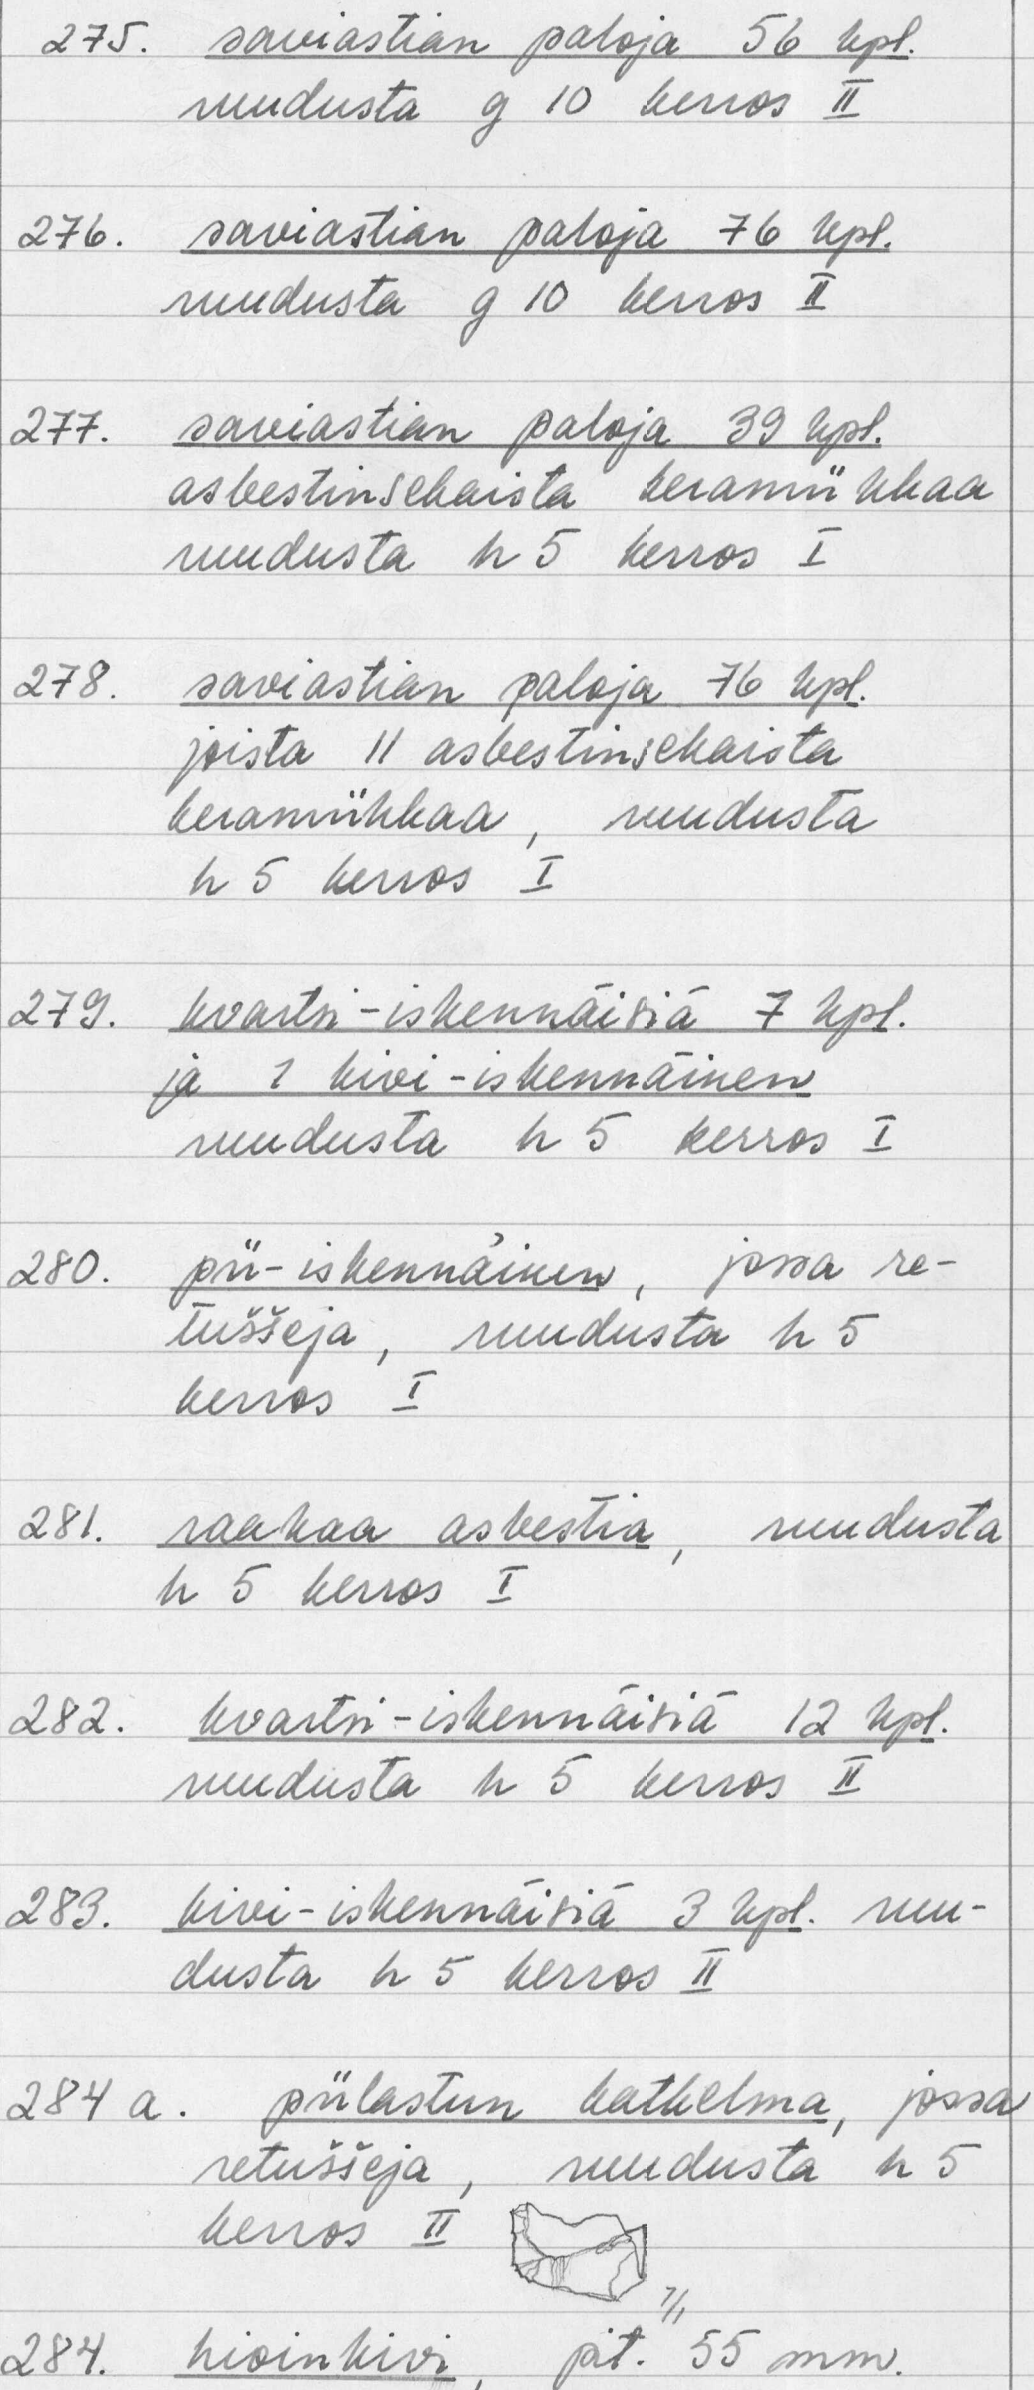 275. saviastian paloja 56 kpl.
ruudusta g 10 kerros II
276. saviastian paloja 76 kpl.
ruudusta g 10 kerros II
277. saviastian paloja 39 kpl.
asbestinsekaista keramiikkaa
ruudusta h 5 kerros I
278. saviastian paloja 76 kpl.
joista 11 asbestinsekaista
keramiikkaa, ruudusta
h 5 kerros I
279. kvartsi-iskennäisiä 7 kpl.
ja 1 kivi-iskennäinen
ruudusta h 5 kerros I
280. pii-iskennäinen, jossa re-
tuššeja, ruudusta h 5
kerros I
281. raakaa asbestia, ruudusta
h 5 kerros I
282. kvartsi-iskennäisiä 12 kpl.
ruudusta h 5 kerros II
283. kivi-iskennäisiä 3 kpl. ruu-
dusta h 5 kerros II
284 a. piilastun katkelma, jossa
retuššeja, ruudusta h 5
kerros II
1/1
284. hioinkivi, pit. 55 mm.